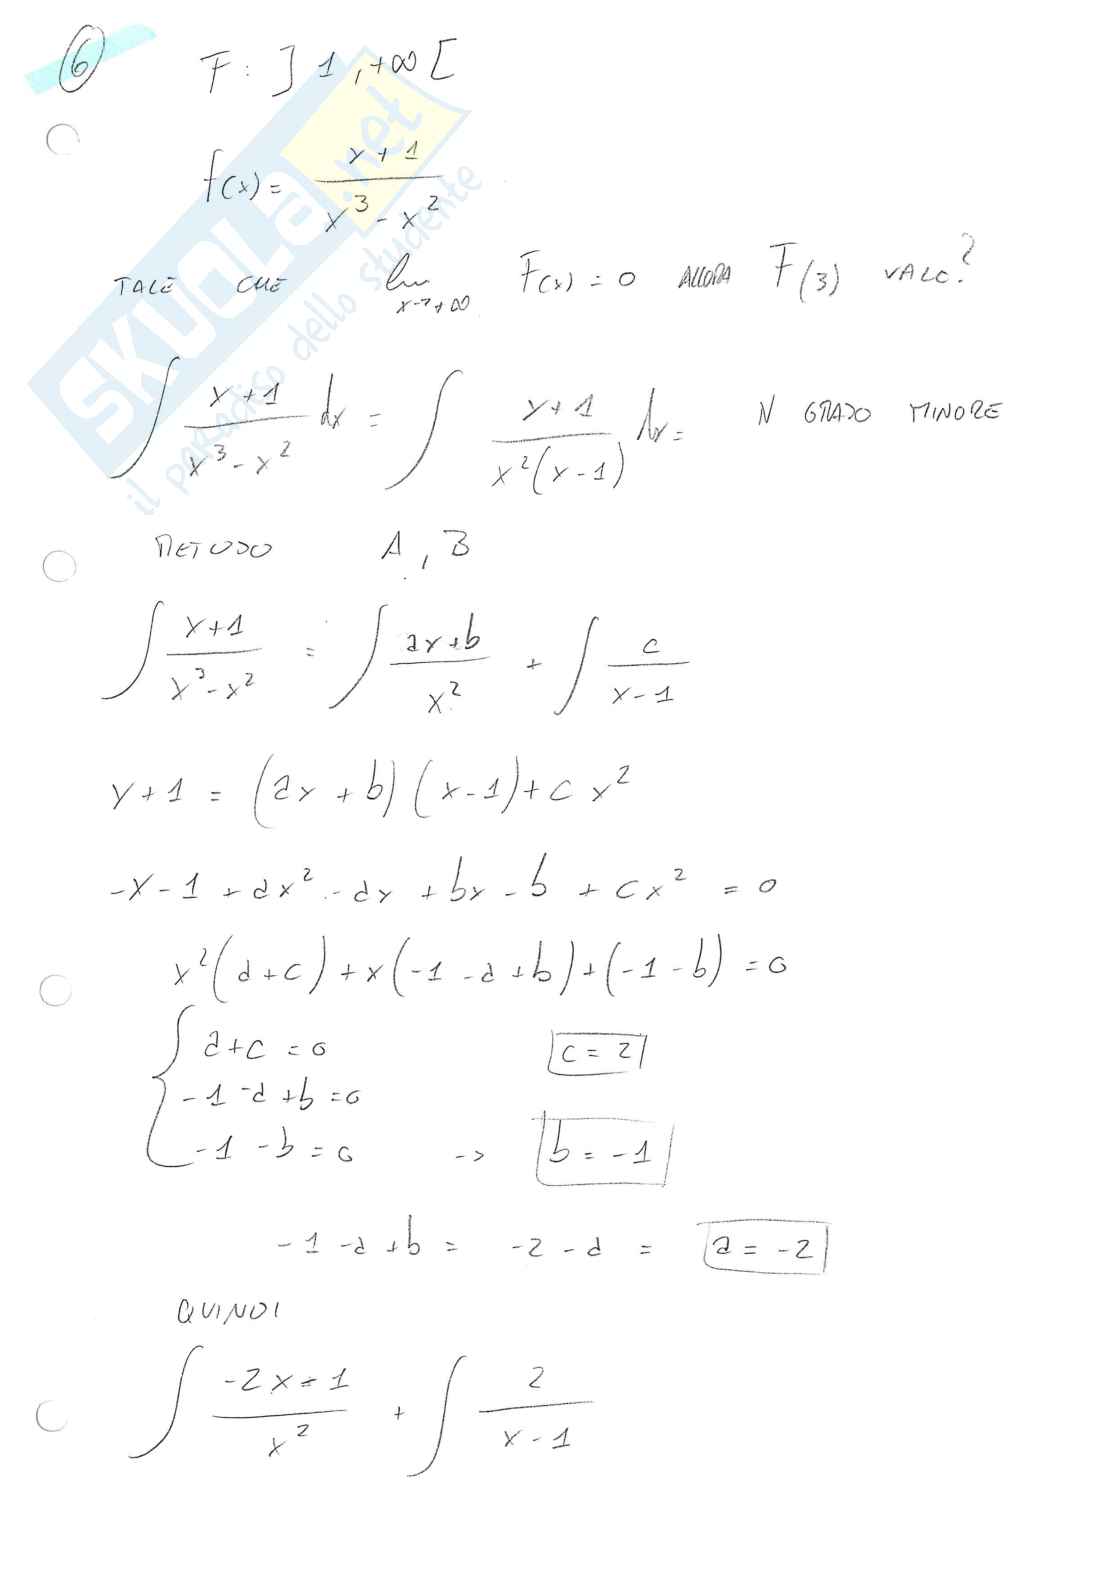 6 F : ] 1 , +∞ [
f(x) = x + 1 / x³ - x²
TALE CHE lim x→+∞ F(x) = 0 ALLORA F(3) VALE?
∫ x + 1 / x³ - x² dx = ∫ x + 1 / x²(x - 1) dx = N GRADO MINORE
METODO A , B
∫ x+1 / x³ - x² = ∫ ax+b / x² + ∫ c / x - 1
x + 1 = (ax + b) (x - 1) + c x²
-x - 1 + ax² - ax + bx - b + cx² = 0
x² (a + c) + x (-1 - a + b) + (-1 - b) = 0
a + c = 0 c = 2
-1 - a + b = 0
-1 - b = 0 -> b = -1
-1 - a + b = -2 - a = a = -2
QUINDI
∫ -2x - 1 / x² + ∫ 2 / x - 1
SKUOLA.net
il paradiso dello studente